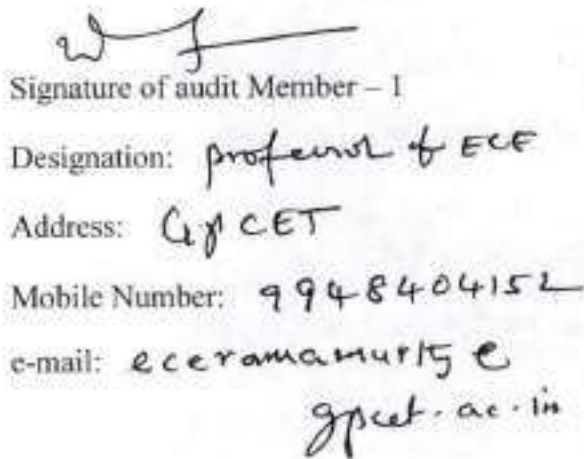 Signature of audit Member – 1
Designation: professor of ECE
Address: GPCET
Mobile Number: 9948404152
e-mail: eceramamurty@
gpcet.ac.in